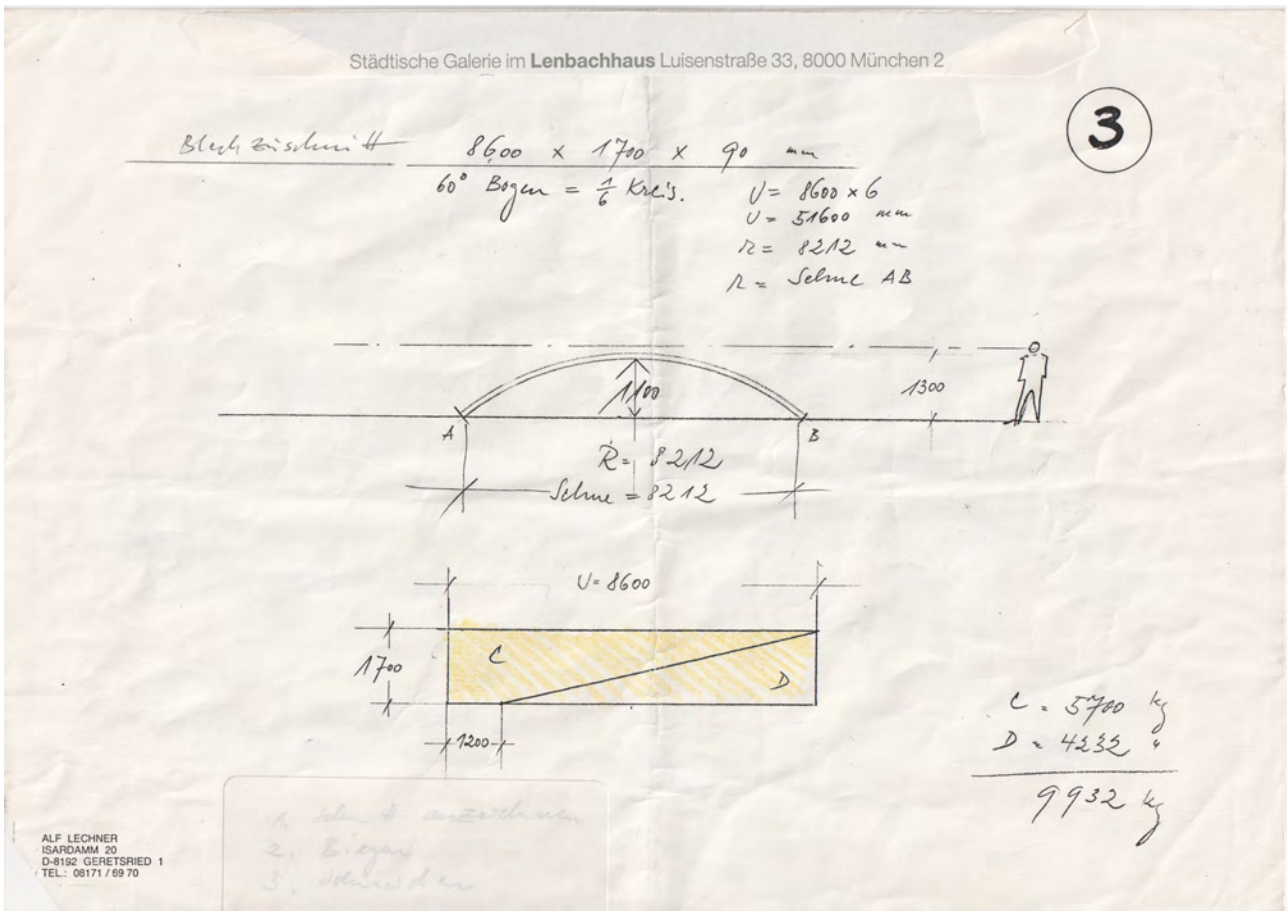 Städtische Galerie im Lenbachhaus Luisenstraße 33, 8000 München 2
3
Blechzuschnitt 8600 x 1700 x 90 mm
60° Bogen = 1/6 Kreis.
U = 8600 x 6
U = 51600 mm
r = 8212 mm
r = Sehne AB
1100
1300
A
B
R = 8212
Sehne = 8212
U = 8600
1700
C
D
1200
C = 5700 kg
D = 4232 "
9932 kg
1. Schnitt
2. Biegen
3. Schneiden
ALF LECHNER
ISARDAMM 20
D-8192 GERETSRIED 1
TEL.: 08171 / 69 70